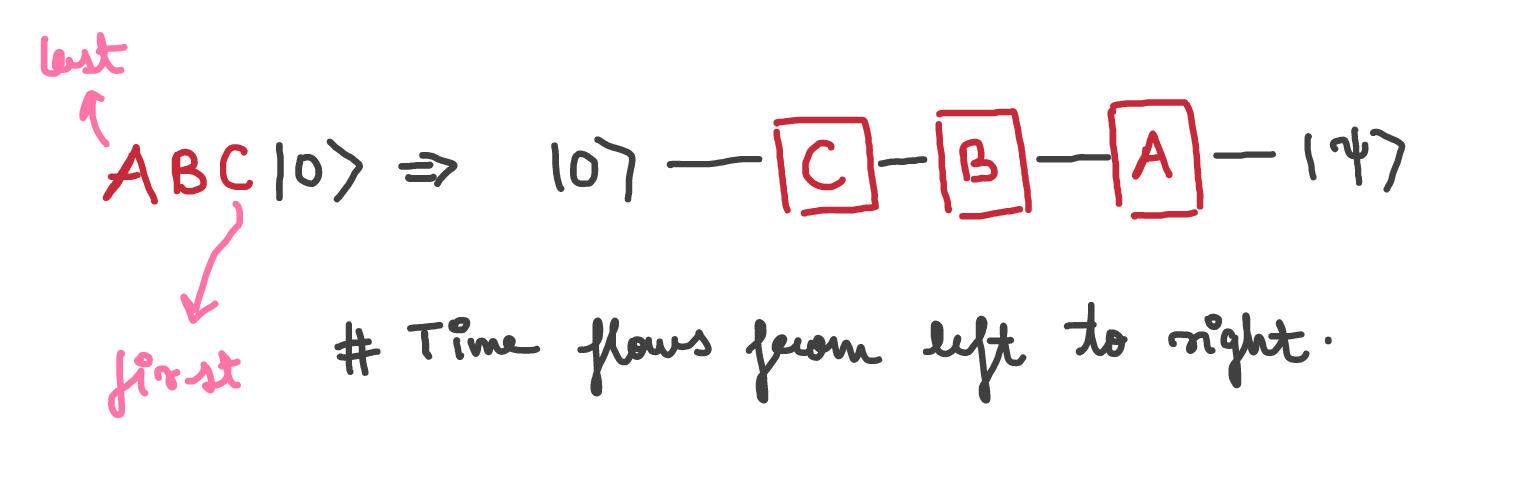 last
ABC|0⟩ ⇒ |0⟩ — C — B — A — |ψ⟩
first
# Time flows from left to right.